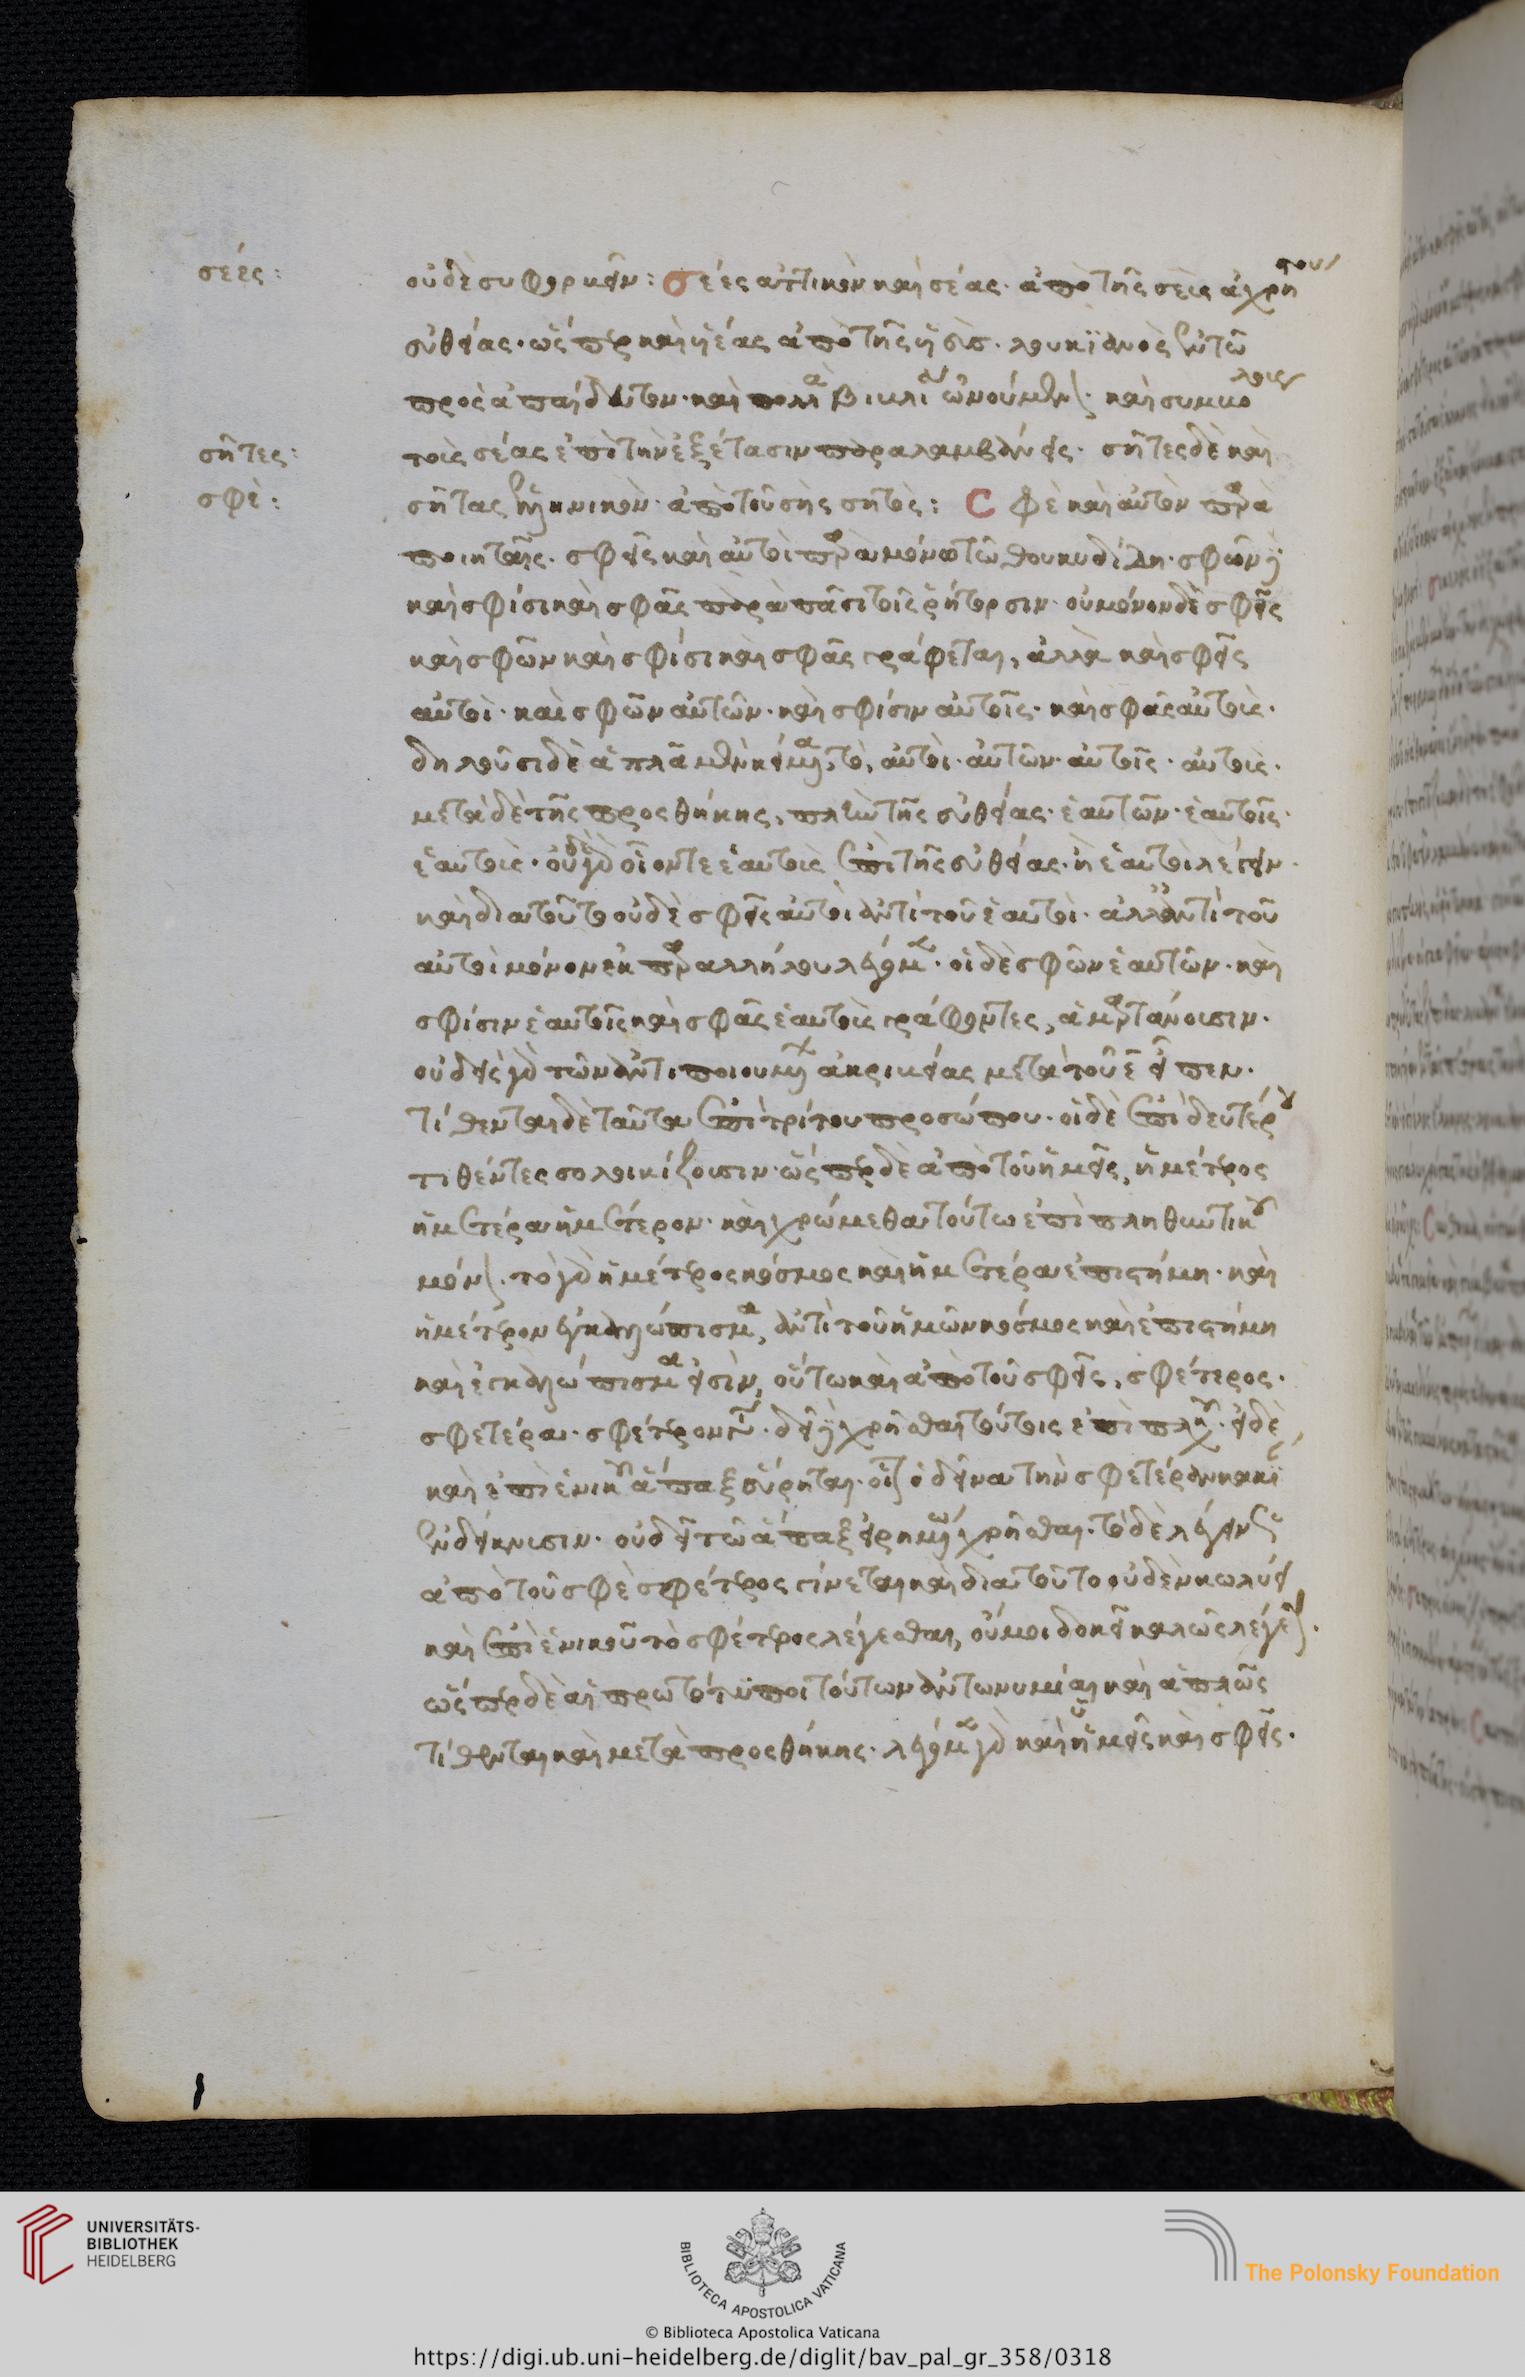 σεές:
οὐδὲ συφορκεῖν: σεές ἀττικὸν καὶ σέας· ἀπὸ τῆς σεῖς ἀχρήστου
εὐθείας· ὥσπερ καὶ υἱέας ἀπὸ τῆς υἱεῖς· λουκιανὸς ἐν τῷ
πρὸς ἀπαίδευτον· καὶ πολλὰ βιβλία ὠνούμενος· καὶ συμβόλοις
τοῖς σέας ἐπὶ τὴν ἐξέτασιν παραλαμβάνεις· σῆτες δὲ καὶ
σῆτες:
σῆτας ἑλληνικὸν· ἀπὸ τοῦ σὴς σητὸς: Σφὲ καὶ αὐτὸν παρὰ
σφὲ:
ποιηταῖς· σφεῖς καὶ αὐτοὶ παρὰ μόνῳ τῷ θουκυδίδῃ· σφῶν δὲ
καὶ σφίσι καὶ σφᾶς παρὰ πᾶσι τοῖς ῥήτορσιν· οὐ μόνον δὲ σφεῖς
καὶ σφῶν καὶ σφίσι καὶ σφᾶς γράφεται, ἀλλὰ καὶ σφεῖς
αὐτοὶ· καὶ σφῶν αὐτῶν· καὶ σφίσιν αὐτοῖς· καὶ σφᾶς αὐτοὺς·
δηλοῦσι δὲ ἁπλᾶ μὲν κείμενα, τὸ, αὐτοὶ· αὐτῶν· αὐτοῖς· αὐτοὺς·
μετὰ δὲ τῆς προσθήκης, πλὴν τῆς εὐθείας· ἑαυτῶν· ἑαυτοῖς·
ἑαυτοὺς· οὐδὲ γὰρ οἷον τε ἑαυτοὺς ἐπὶ τῆς εὐθείας· ἢ ἑαυτοὶ λέγειν·
καὶ διὰ τοῦτο οὐδὲ σφεῖς αὐτοὶ ἀντὶ τοῦ ἑαυτοὶ· ἀλλ' ἀντὶ τοῦ
αὐτοὶ μόνον ἐκ παραλλήλου λέγομεν· οἱ δὲ σφῶν ἑαυτῶν· καὶ
σφίσιν ἑαυτοῖς καὶ σφᾶς ἑαυτοὺς γράφοντες, ἁμαρτάνουσιν·
οὐδεὶς γὰρ τῶν ἀντιποιουμένων ἀκριβείας μετὰ τοῦ ε εἶπεν·
τίθενται δὲ ταῦτα ἐπὶ τρίτου προσώπου· οἱ δὲ ἐπὶ δευτέρου
τιθέντες σολοικίζουσιν· ὥσπερ δὲ ἀπὸ τοῦ ἡμεῖς, ἡμέτερος
ἡμετέρα ἡμέτερον· καὶ χρώμεθα τούτω ἐπὶ πληθυντικοῦ
μόνου· τὸ γὰρ ἡμέτερος κόσμος καὶ ἡμετέρα ἐπιστήμη· καὶ
ἡμέτερον ἐγκαλλώπισμα, ἀντὶ τοῦ ἡμῶν κόσμος καὶ ἐπιστήμη
καὶ ἐγκαλλώπισμα εἰσὶν, οὕτω καὶ ἀπὸ τοῦ σφεῖς, σφέτερος·
σφετέρα· σφέτερον· δεῖ δὲ χρῆσθαι τούτοις ἐπὶ πληθυντικοῦ· εἰ δὲ
καὶ ἐπὶ ἑνικοῦ ἅπαξ εὕρηται· οἷον ὁ δεῖνα τὴν σφετέραν κακίαν
ἐνδείκνυσιν· οὐ δεῖ τῷ ἅπαξ εἰρημένῳ χρῆσθαι· τὸ δὲ λέγειν ὅτι
ἀπὸ τοῦ σφὲ σφέτερος γίνεται καὶ διὰ τοῦτο οὐδὲν κωλύει
καὶ ἐπὶ ἑνικοῦ τὸ σφέτερος λέγεσθαι, οὔ μοι δοκεῖ καλῶς λέγεσθαι·
ὥσπερ δὲ αἱ πρωτότυποι τούτων ἀντωνυμίαι καὶ ἁπλῶς
τίθενται καὶ μετὰ προσθήκης· λέγομεν γὰρ καὶ ἡμεῖς καὶ σφεῖς·
UNIVERSITÄTS-
BIBLIOTHEK
HEIDELBERG
BIBLIOTECA APOSTOLICA VATICANA
The Polonsky Foundation
© Biblioteca Apostolica Vaticana
https://digi.ub.uni-heidelberg.de/diglit/bav_pal_gr_358/0318